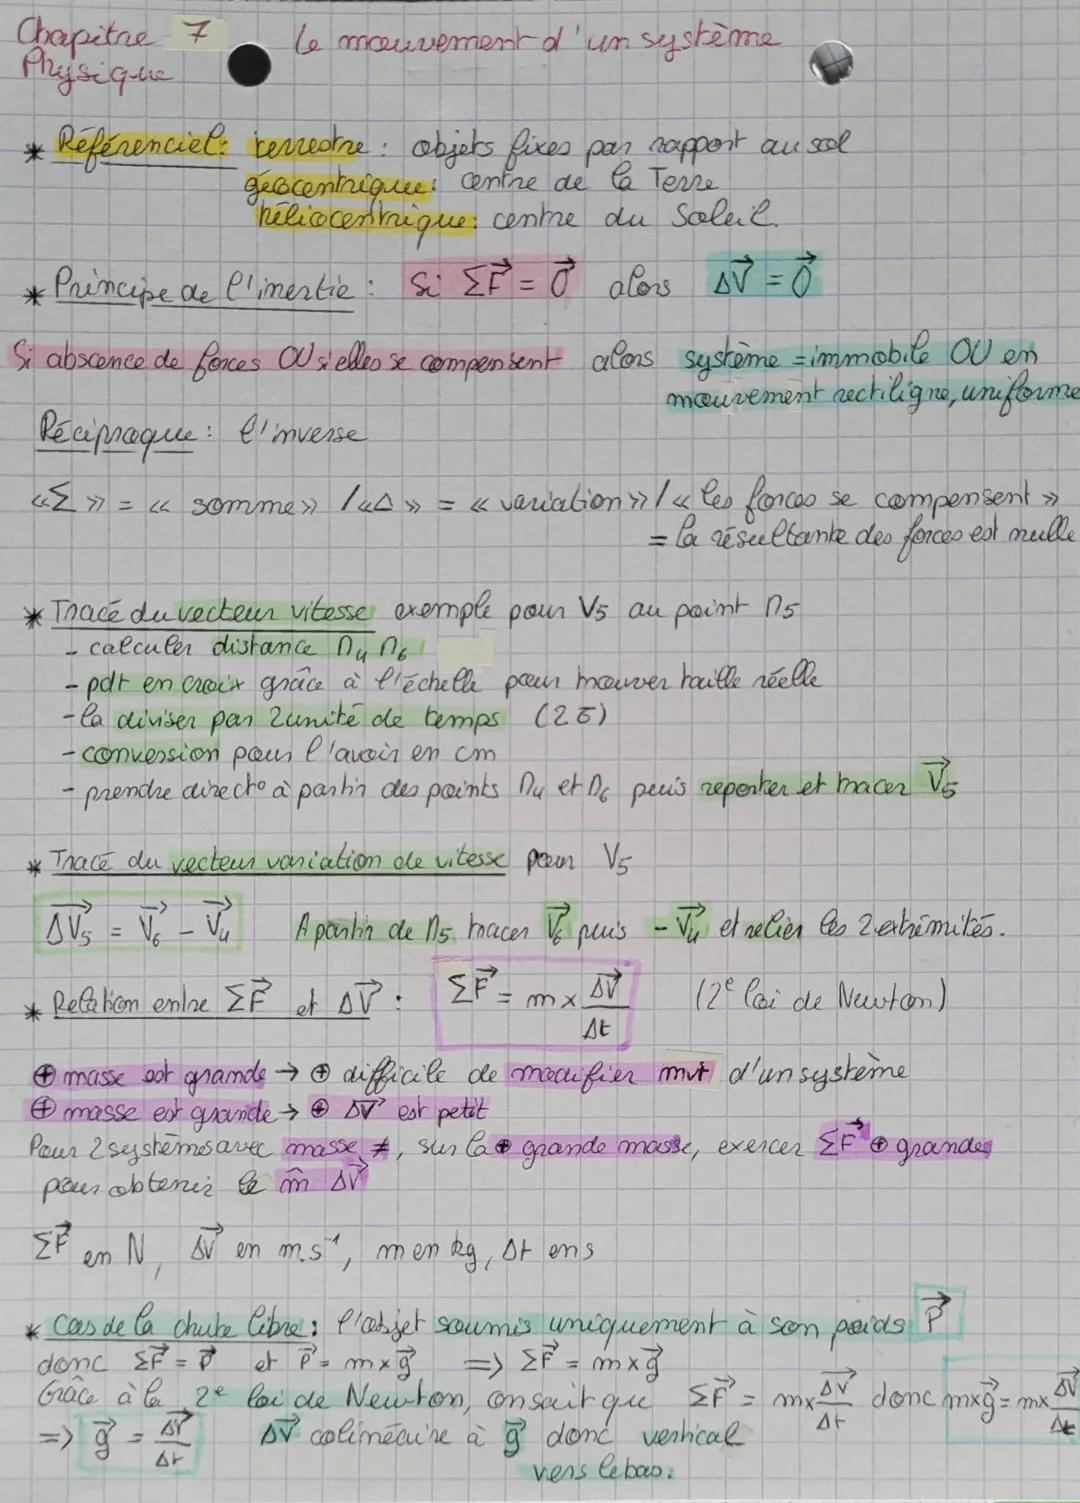 Chapitre 7 Le mouvement d'un système
Physique
* Référenciel: terrestre : objets fixes par rapport au sol
géocentrique: centre de la Terre
héliocentrique: centre du Soleil.
* Principe de l'inertie : Si ΣF⃗ = 0⃗ alors ΔV⃗ = 0⃗
Si abscence de forces OU si elles se compensent alors système = immobile OU en
mouvement rectiligne, uniforme
Réciproque : l'inverse
«Σ» = « somme» / «Δ» = « variation» / « les forces se compensent »
= la résultante des forces est nulle
* Tracé du vecteur vitesse exemple pour V5 au point M5
- calculer distance M4 M6
- pdt en croix grâce à l'échelle pour trouver taille réelle
- la diviser par 2 unité de temps (2δ)
- conversion pour l'avoir en cm
- prendre directº à partir des points M4 et M6 puis reporter et tracer V⃗5
* Tracé du vecteur variation de vitesse pour V5
ΔV⃗5 = V⃗6 - V⃗4 A partir de M5 tracer V⃗6 puis - V⃗4 et relier les 2 extrémités.
* Relation entre ΣF⃗ et ΔV⃗ : ΣF⃗ = m × ΔV⃗/Δt (2e loi de Newton)
⊕ masse est grande → ⊕ difficile de modifier mvt d'un système
⊕ masse est grande → ⊕ ΔV⃗ est petit
Pour 2 systèmes avec masse ≠, sur la ⊕ grande masse, exercer ΣF⃗ ⊕ grandes
pour obtenir le m̂ ΔV⃗
ΣF⃗ en N, ΔV⃗ en m.s⁻¹, m en kg, Δt en s
* Cas de la chute libre : l'objet soumis uniquement à son poids P⃗
donc ΣF⃗ = P⃗ et P⃗ = m × g⃗ => ΣF⃗ = m × g⃗
Grâce à la 2e loi de Newton, on sait que ΣF⃗ = m × ΔV⃗/Δt donc m × g⃗ = m × ΔV⃗/Δt
=> g⃗ = ΔV⃗/Δt ΔV⃗ colinéaire à g⃗ donc vertical
vers le bas.